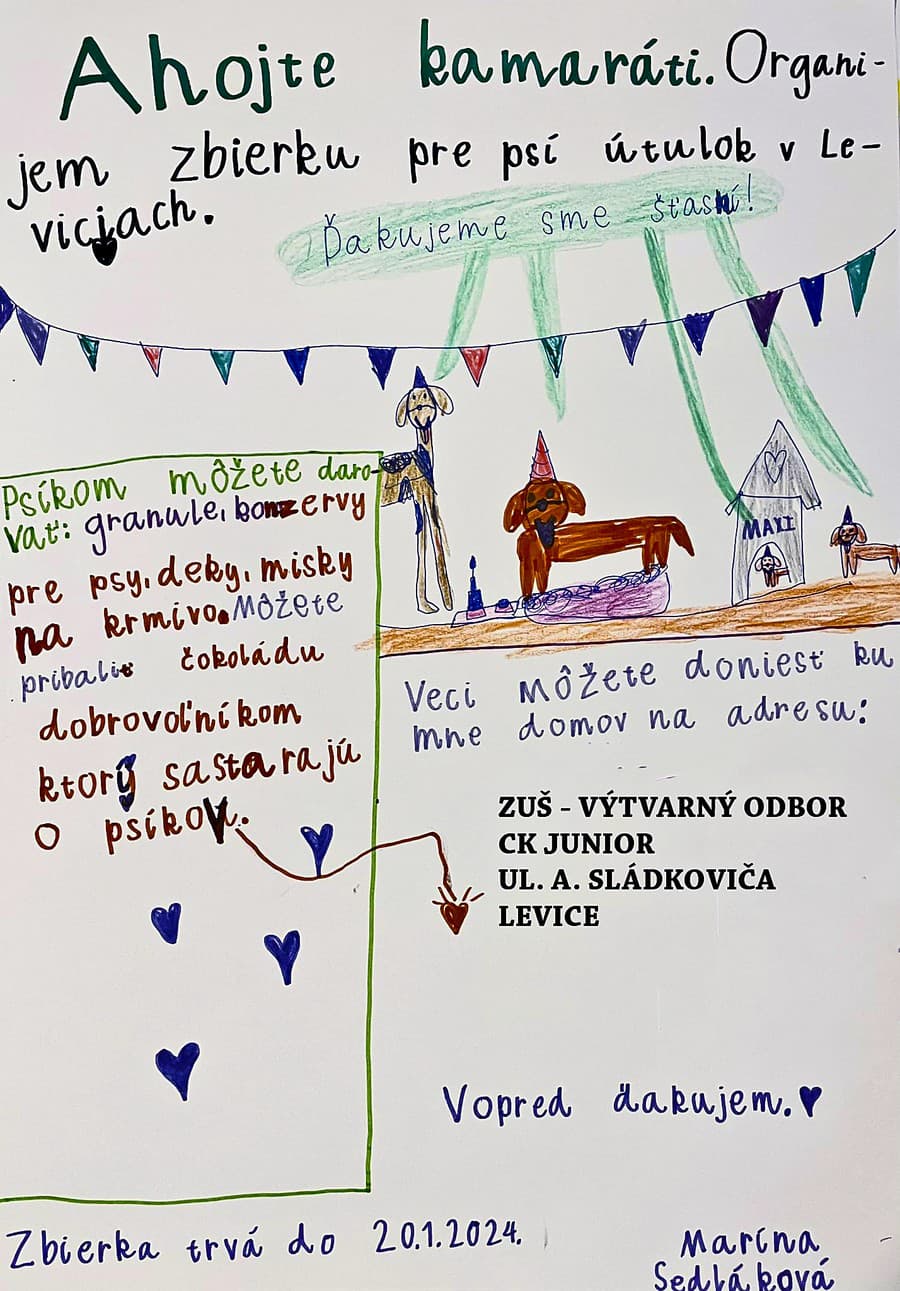 Ahojte kamaráti. Organi-
jem zbierku pre psí útulok v Le-
viciach.
Ďakujeme sme šťasní!
Psíkom môžete daro-
vať: granule, konzervy
pre psy, deky, misky
na krmivo. Môžete
pribaliť čokoládu
dobrovoľníkom
ktorý sa starajú
o psíkov.
MAXI
Veci môžete doniesť ku
mne domov na adresu:
ZUŠ - VÝTVARNÝ ODBOR
CK JUNIOR
UL. A. SLÁDKOVIČA
LEVICE
Vopred ďakujem.
Zbierka trvá do 20.1.2024.
Marína
Sedláková